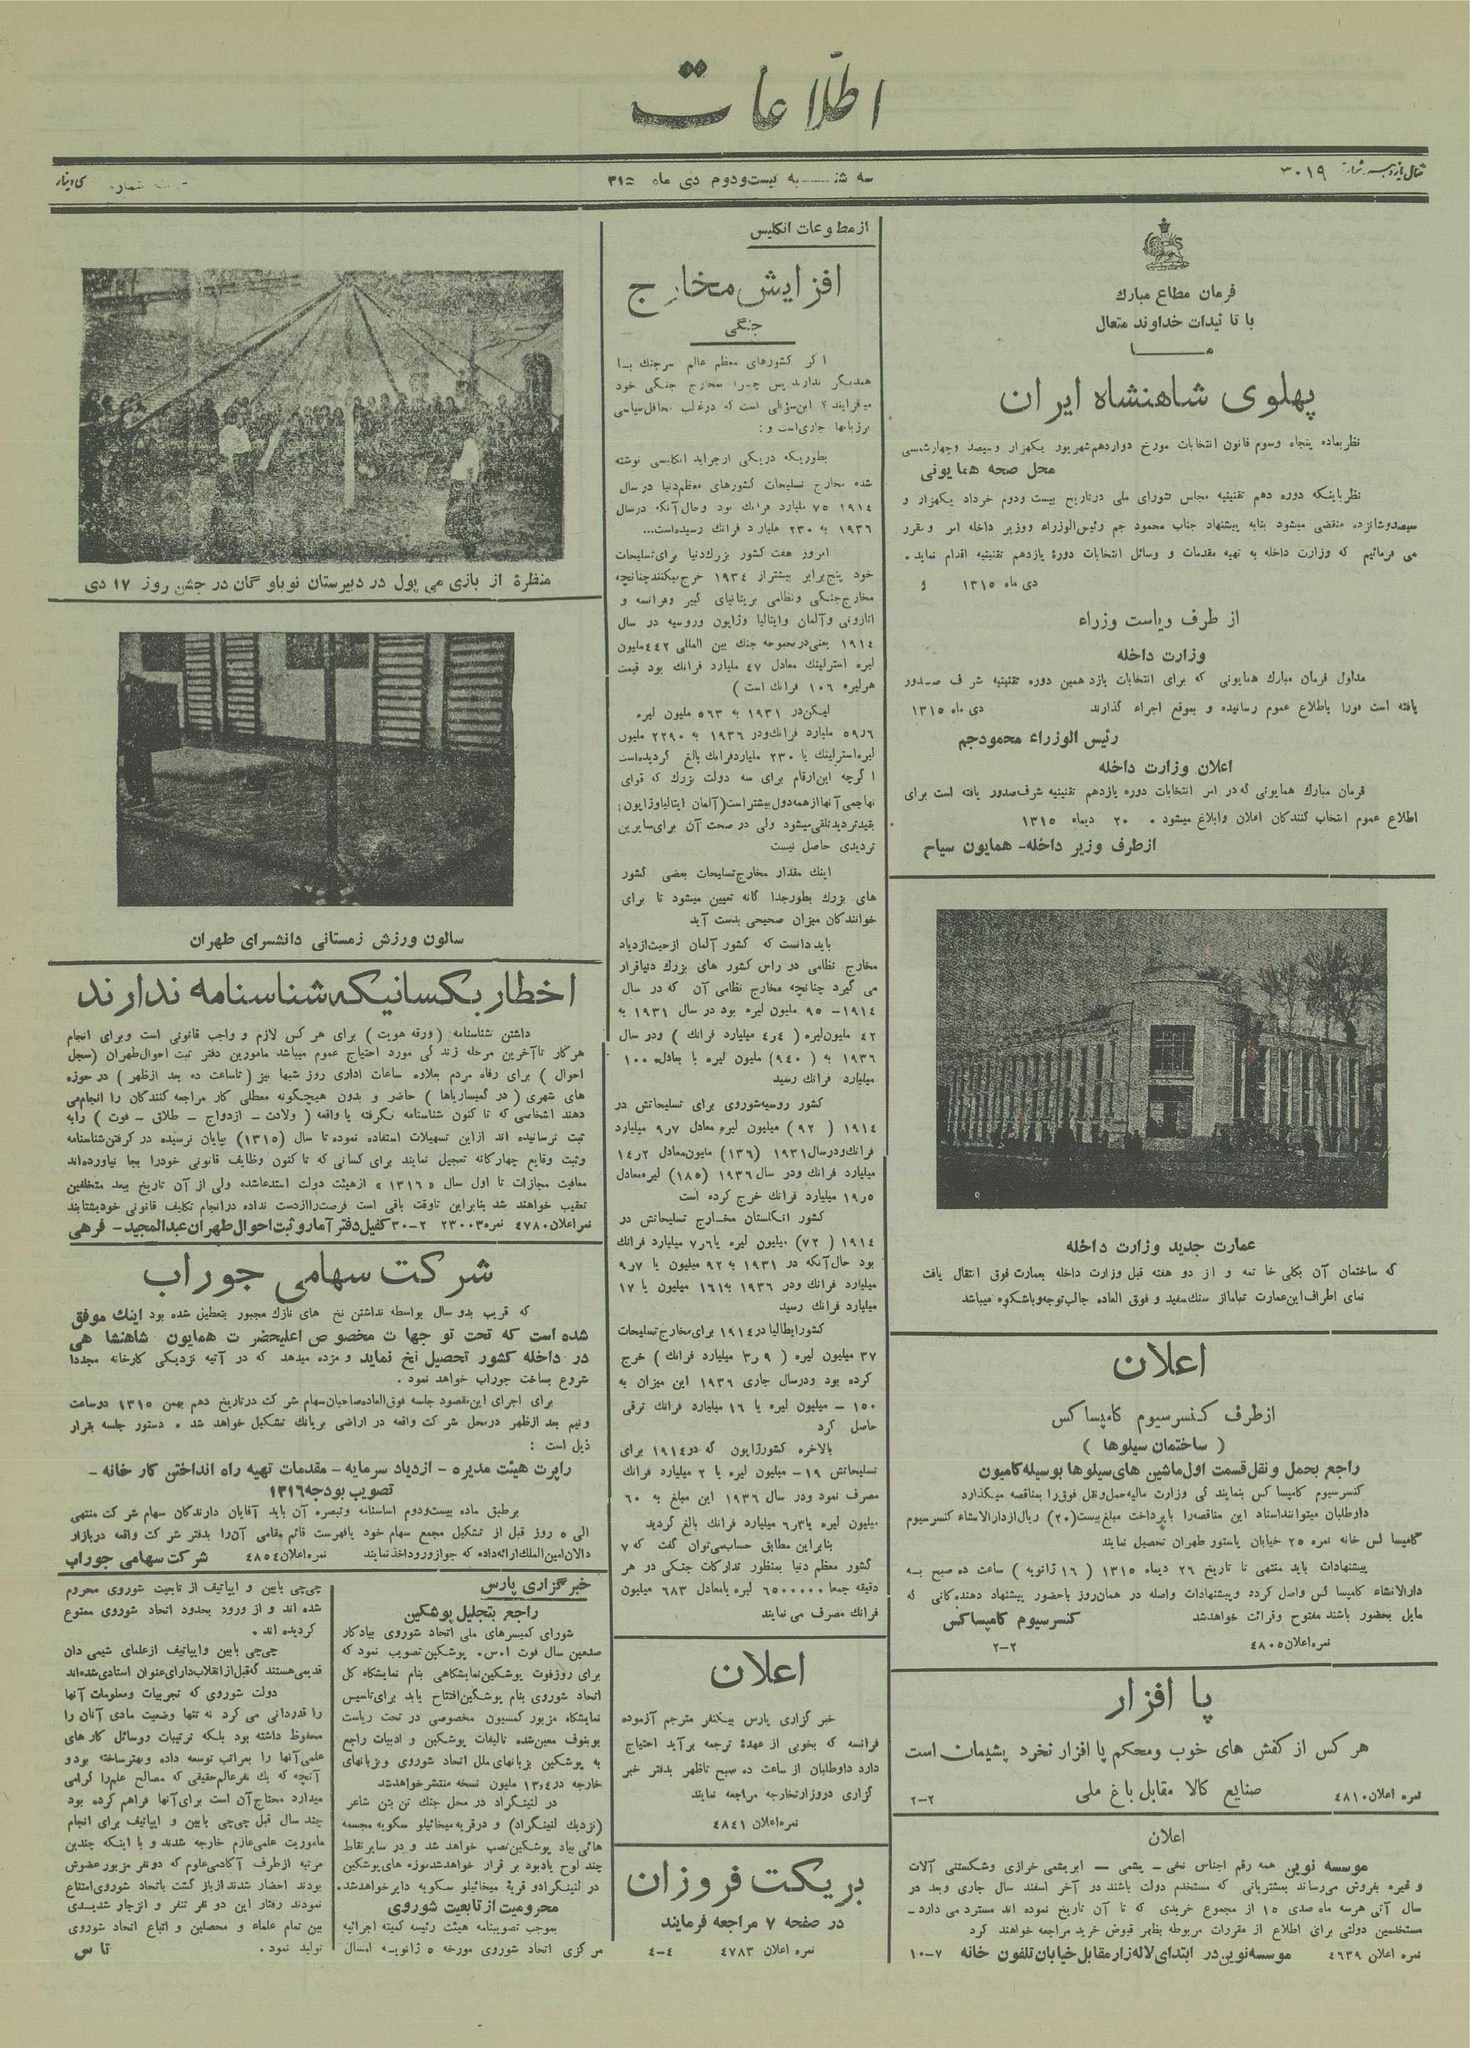 اطلاعات
سال یازدهم شماره ۳۰۱۹
سه شنبه بیست و دوم دی ماه ۱۳۱۵
فرمان مطاع مبارك
با تائیدات خداوند متعال
ما
پهلوی شاهنشاه ایران
نظر بماده پنجاه وسوم قانون انتخابات مورخ دوازدهم شهریور یكهزار و سیصد و چهار شمسی
محل صحه همایونی
نظر باینكه دوره دهم تقنینیه مجلس شورای ملی در تاریخ بیست ودوم خرداد یكهزار و
سیصد و شانزده منقضی میشود بنابه پیشنهاد جناب محمود جم رئیس الوزراء ووزیر داخله امر و مقرر
می فرمائیم كه وزارت داخله به تهیه مقدمات و وسائل انتخابات دورهٔ یازدهم تقنینیه اقدام نماید .
دی ماه ۱۳۱۵
از طرف ریاست وزراء
وزارت داخله
مدلول فرمان مبارك همایونی كه برای انتخابات یازدهمین دوره تقنینیه شرف صدور
یافته است فورا باطلاع عموم رسانیده و بموقع اجراء گذارند دی ماه ۱۳۱۵
رئیس الوزراء محمود جم
اعلان وزارت داخله
فرمان مبارك همایونی كه در امر انتخابات دوره یازدهم تقنینیه شرف صدور یافته است برای
اطلاع عموم انتخاب كنندگان اعلان وابلاغ میشود . ۲۰ دیماه ۱۳۱۵
از طرف وزیر داخله - همایون سیاح
عمارت جدید وزارت داخله
كه ساختمان آن بكلی خاتمه و از دو هفته قبل وزارت داخله بعمارت فوق انتقال یافت
نمای اطراف این عمارت تماما از سنك سفید و فوق العاده جالب توجه و باشكوه میباشد
اعلان
از طرف كنسرسیوم كامپساكس
( ساختمان سیلوها )
راجع بحمل و نقل قسمت اول ماشین های سیلوها بوسیله كامیون
كنسرسیوم كامپساكس بنمایندگی وزارت مالیه حمل ونقل فوق را بمناقصه میگذارد
داوطلبان میتوانند اسناد این مناقصه را با پرداخت مبلغ بیست (۲۰) ریال از دارالانشاء كنسرسیوم
كامپساكس خانه نمره ۲۵ خیابان پاستور طهران تحصیل نمایند
پیشنهادات باید منتهی تا تاریخ ۲۶ دیماه ۱۳۱۵ ( ۱۶ ژانویه ) ساعت ده صبح به
دارالانشاء كامپساكس واصل گردد وپیشنهادات واصله در همان روز باحضور پیشنهاد دهندگانی كه
مایل بحضور باشند مفتوح وقرائت خواهد شد كنسرسیوم كامپساكس
نمره اعلان ۴۸۰۵ ۲-۲
پا افزار
هر كس از كفش های خوب ومحكم پا افزار نخرد پشیمان است
نمره اعلان ۴۸۱۰ صنایع كالا مقابل باغ ملی ۲-۲
اعلان
موسسه نوین همه رقم اجناس نخی - پشمی - ابریشمی خرازی وشكستنی آلات
و غیره بفروش می رساند بمشتریانی كه مستخدم دولت باشند در آخر اسفند سال جاری وبعد در
سال آتی هر سه ماه صدی ۱۵ از مجموع خریدی كه تا آن تاریخ نموده اند مسترد می دارد -
مستخدمین دولتی برای اطلاع از مقررات مربوطه بظهر قبوض خرید مراجعه خواهند كرد
نمره اعلان ۴۶۳۹ موسسه نوین در ابتدای لاله زار مقابل خیابان تلفون خانه ۷-۱۰
از مطبوعات انگلیس
افزایش مخارج
جنگی
اگر كشورهای معظم عالم سر جنك با
همدیگر ندارند پس چرا مخارج جنگی خود
میفزایند ؟ این سؤالی است كه در غلب محافل سیاسی
برزبانها جاری است و :
بطوریكه در یكی از جراید انگلیسی نوشته
شده مخارج تسلیحات كشورهای معظم دنیا در سال
۱۹۱۴ ۷۵ ملیارد فرانك بود وحال آنكه در سال
۱۹۳۶ به ۲۳۰ ملیارد فرانك رسیده است...
امروز هفت كشور بزرك دنیا برای تسلیحات
خود پنج برابر بیشتر از ۱۹۳۴ خرج میكنند چنانچه
مخارج جنگی ونظامی بریتانیای كبیر وفرانسه و
اتازونی و آلمان وایتالیا وژاپون وروسیه در سال
۱۹۱۴ یعنی در بحبوحه جنك بین المللی ۴۴۲ ملیون
لیره استرلینك معادل ۴۷ ملیارد فرانك بود قیمت
هر لیره ۱۰۶ فرانك است )
لیكن در ۱۹۳۱ به ۵۶۳ ملیون لیره
۵۹ر۶ ملیارد فرانك و در ۱۹۳۶ به ۲۲۹۰ ملیون
لیره استرلینك یا ۲۳۰ ملیارد فرانك بالغ گردیده است
اگرچه این ارقام برای سه دولت بزرك كه قوای
تهاجمی آنها از همه دول بیشتر است (آلمان ایتالیا وژاپون)
بقید تردید تلقی میشود ولی در صحت آن برای سایرین
تردیدی حاصل نیست
اینك مقدار مخارج تسلیحات بعضی كشور
های بزرك بطور جداگانه تعیین میشود تا برای
خوانندگان میزان صحیحی بدست آید
باید دانست كه كشور آلمان از حیث ازدیاد
مخارج نظامی در راس كشور های بزرك دنیا قرار
می گیرد چنانچه مخارج نظامی آن كه در سال
۱۹۱۴- ۹۵ ملیون لیره بود در سال ۱۹۳۱ به
۴۲ ملیون لیره ( ۴ر۴ میلیارد فرانك ) ودر سال
۱۹۳۶ به ( ۹۴۰ ) ملیون لیره با بعادل ۱۰۰
میلیارد فرانك رسید
كشور روسیه شوروی برای تسلیحاتش در
۱۹۱۴ ( ۹۲ ) میلیون لیره معادل ۷ر۹ میلیارد
فرانك ودر سال ۱۹۳۱ (۱۳۶) ملیون معادل ۲ر۱۴
میلیارد فرانك ودر سال ۱۹۳۶ (۱۸۵) لیره معادل
۵ر۱۹ میلیارد فرانك خرج كرده است
كشور انگلستان مخارج تسلیحاتش در
۱۹۱۴ ( ۷۲ ) ملیون لیره یا ۶ر۷ میلیارد فرانك
بود حال آنكه در ۱۹۳۱ به ۹۲ میلیون یا ۷ر۹
میلیارد فرانك ودر ۱۹۳۶ به ۱۶۱ میلیون یا ۱۷
میلیارد فرانك رسید
كشور ایطالیا در ۱۹۱۴ برای مخارج تسلیحات
۳۷ میلیون لیره ( ۹ر۳ میلیارد فرانك ) خرج
كرده بود ودر سال جاری ۱۹۳۶ این میزان به
۱۵۰ - میلیون لیره یا ۱۶ میلیارد فرانك ترقی
حاصل كرد
بالاخره كشور ژاپون كه در ۱۹۱۴ برای
تسلیحاتش ۱۹- میلیون لیره یا ۲ میلیارد فرانك
مصرف نمود ودر سال ۱۹۳۶ این مبلغ به ۶۰
میلیون لیره یا ۳ر۶ میلیارد فرانك بالغ گردید
بنابراین مطابق حساب می توان گفت كه ۷
كشور معظم دنیا بمنظور تداركات جنگی در هر
دقیقه جمعا ۶۵۰۰۰۰۰ لیره یا معادل ۶۸۳ میلیون
فرانك مصرف می نمایند
اعلان
خبر گزاری پارس بیكنفر مترجم آزموده
فرانسه كه بخوبی از عهدهٔ ترجمه برآید احتیاج
دارد داوطلبان از ساعت ده صبح تا ظهر بدفتر خبر
گزاری در وزارتخارجه مراجعه نمایند
نمره اعلان ۴۸۴۱
بریكت فروزان
در صفحه ۷ مراجعه فرمایند
نمره اعلان ۴۷۸۳ ۴-۴
منظرهٔ از بازی می پول در دبیرستان نوباوگان در جشن روز ۱۷ دی
سالون ورزش زمستانی دانشسرای طهران
اخطار بكسانیكه شناسنامه ندارند
داشتن شناسنامه ( ورقه هویت ) برای هر كس لازم و واجب قانونی است وبرای انجام
هر كار تا آخرین مرحله زندگی مورد احتیاج عموم میباشد مامورین دفتر ثبت احوال طهران (سجل
احوال ) برای رفاه مردم بعلاوه ساعات اداری روز شبها نیز ( تا ساعت ده بعد از ظهر ) در حوزه
های شهری ( در كمیساریاها ) حاضر و بدون هیچگونه معطلی كار مراجعه كنندگان را انجام می
دهند اشخاصی كه تا كنون شناسنامه نگرفته یا واقعه ( ولادت - ازدواج - طلاق - فوت ) را به
ثبت نرسانیده اند از این تسهیلات استفاده نموده تا سال (۱۳۱۵) بپایان نرسیده در گرفتن شناسنامه
وثبت وقایع چهارگانه تعجیل نمایند برای كسانی كه تا كنون وظایف قانونی خودرا بجا نیاورده اند
معافیت مجازات تا اول سال « ۱۳۱۶ » از هیئت دولت استدعا شده ولی از آن تاریخ ببعد متخلفین
تعقیب خواهند شد بنابراین تا وقت باقی است فرصت را از دست نداده در انجام تكلیف قانونی خود بشتابند
نمره اعلان ۴۷۸۰ نمره ۲۳۰۰۳ ۲-۳۰ كفیل دفتر آمار و ثبت احوال طهران عبدالمجید - فرهی
شركت سهامی جوراب
كه قریب بدو سال بواسطه نداشتن نخ های نازك مجبور بتعطیل شده بود اینك موفق
شده است كه تحت توجهات مخصوص اعلیحضرت همایون شاهنشاهی
در داخله كشور تحصیل نخ نماید و مژده میدهد كه در آتیه نزدیكی كارخانه مجددا
شروع بساخت جوراب خواهد نمود .
برای اجرای این مقصود جلسه فوق العاده صاحبان سهام شركت در تاریخ دهم بهمن ۱۳۱۵ دو ساعت
ونیم بعد از ظهر در محل شركت واقعه در اراضی بریانك تشكیل خواهد شد . دستور جلسه بقرار
ذیل است :
راپرت هیئت مدیره - ازدیاد سرمایه - مقدمات تهیه راه انداختن كارخانه -
تصویب بودجه ۱۳۱۶
برطبق ماده بیست ودوم اساسنامه وتبصره آن باید آقایان دارندگان سهام شركت منتهی
الی ۵ روز قبل از تشكیل مجمع سهام خود یا فهرست قائم مقامی آن را بدفتر شركت واقعه در بازار
دالان امین الملك ارائه داده كه جواز ورود اخذ نمایند نمره اعلان ۴۸۵۴ شركت سهامی جوراب
خبرگزاری پارس
راجع بتجلیل پوشكین
شورای كمیسرهای ملی اتحاد شوروی بیادگار
صدمین سال فوت ا.س. پوشكین تصویب نمود كه
برای روز فوت پوشكین نمایشگاهی بنام نمایشگاه كل
اتحاد شوروی بنام پوشگین افتتاح یابد برای تاسیس
نمایشگاه مزبور كمسیون مخصوصی در تحت ریاست
بوبنوف معین شده تالیفات پوشكین و ادبیات راجع
به پوشكین بزبانهای ملل اتحاد شوروی و بزبانهای
خارجه در ۱۳٫۴ ملیون نسخه منتشر خواهد شد
در لنینگراد در محل جنك تن بتن شاعر
(نزدیك لنینگراد) و در قریه میخائیلو سكویه مجسمه
هائی بیاد پوشكین نصب خواهد شد و در سایر نقاط
چند لوح یادبود بر قرار خواهد شد موزه های پوشكین
در لنینگراد و قریهٔ میخائیلو سكویه دایر خواهد شد.
محرومیت از تابعیت شوروی
بموجب تصویبنامه هیئت رئیسه كمیته اجرائیه
مركزی اتحاد شوروی مورخه ۵ ژانویه امسال
چی‌چی بابین و ایپاتیف از تابعیت شوروی محروم
شده اند و از ورود بحدود اتحاد شوروی ممنوع
گردیده اند .
چی‌چی بابین وایپاتیف از علمای شیمی دان
قدیمی هستند كه قبل از انقلاب دارای عنوان استادی شده اند
دولت شوروی كه تجربیات ومعلومات آنها
را قدردانی می كرد نه تنها وضعیت مادی آنان را
محفوظ داشته بود بلكه ترتیبات ووسائل كار های
علمی آنها را بمراتب توسعه داده و بهتر ساخته بود و
آنچه كه یك نفر عالم حقیقی كه مصالح علم را گرامی
میدارد محتاج آن است برای آنها فراهم كرده بود
چند سال قبل چی‌چی بابین و ایپاتیف برای انجام
ماموریت علمی عازم خارجه شدند و با اینكه چندین
مرتبه از طرف آكادمی علوم كه دو نفر مزبور عضوش
بودند احضار شدند از باز گشت باتحاد شوروی امتناع
نمودند رفتار این دو نفر تنفر و انزجار شدیدی
بین تمام علماء و محصلین و اتباع اتحاد شوروی
تولید نمود . تاس